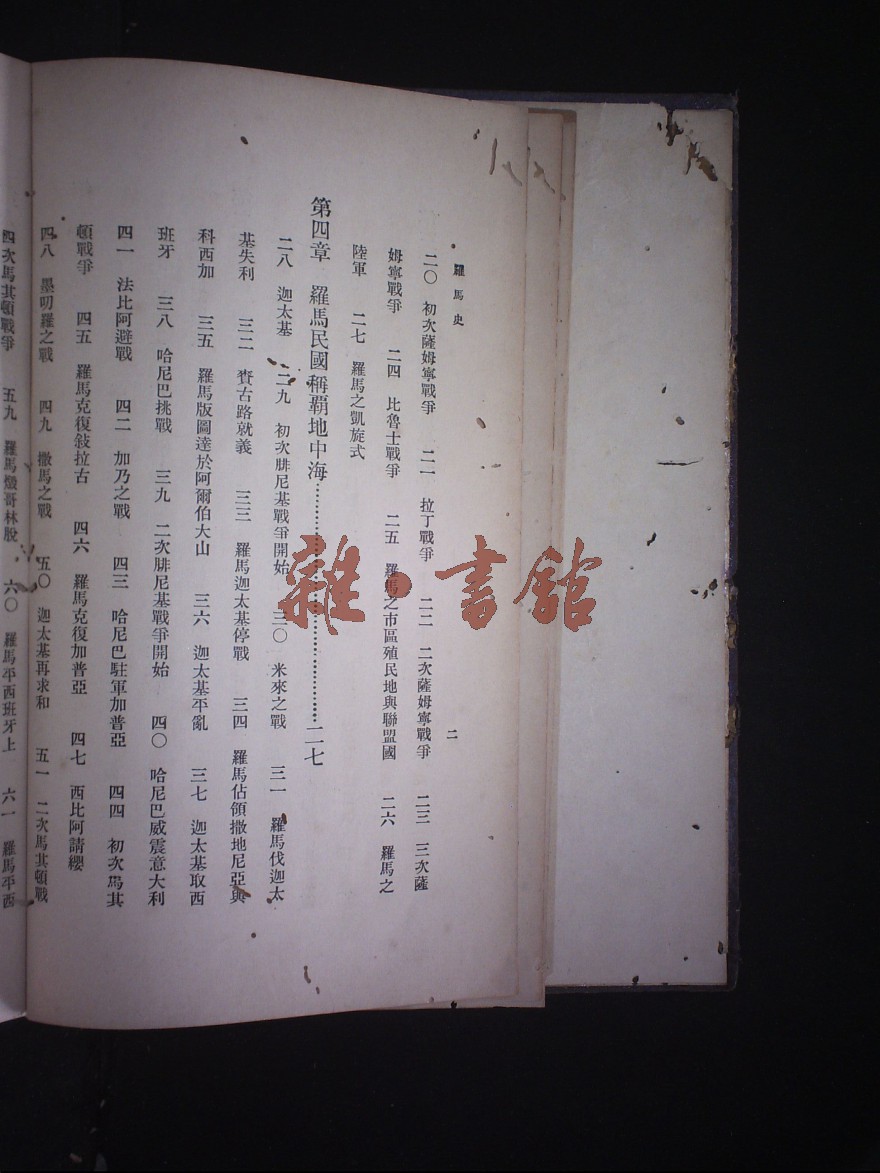 羅馬史
二
二〇　初次薩姆寧戰爭　二一　拉丁戰爭　二二　二次薩姆寧戰爭　二三　三次薩
姆寧戰爭　二四　比魯士戰爭　二五　羅馬之市區殖民地與聯盟國　二六　羅馬之
陸軍　二七　羅馬之凱旋式
第四章　羅馬民國稱霸地中海……………………二七
二八　迦太基　二九　初次腓尼基戰爭開始　三〇　米來之戰　三一　羅馬伐迦太
基失利　三二　賚古路就義　三三　羅馬迦太基停戰　三四　羅馬佔領撒地尼亞與
科西加　三五　羅馬版圖達於阿爾伯大山　三六　迦太基平亂　三七　迦太基取西
班牙　三八　哈尼巴挑戰　三九　二次腓尼基戰爭開始　四〇　哈尼巴威震意大利
四一　法比阿避戰　四二　加乃之戰　四三　哈尼巴駐軍加普亞　四四　初次馬其
頓戰爭　四五　羅馬克復敍拉古　四六　羅馬克復加普亞　四七　西比阿請纓
四八　墨叨羅之戰　四九　撒馬之戰　五〇　迦太基再求和　五一　二次馬其頓戰
四次馬其頓戰爭　五九　羅馬燬哥林股　六〇　羅馬平西班牙上　六一　羅馬平西
雜·書館